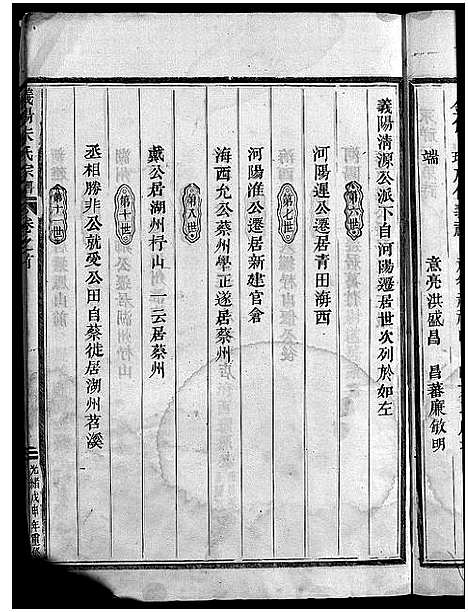 端
意亮洪盛昌 昌蕃廉敏明
義陽清源公派下自河陽遷居世次列於如左
第六世
河陽遲公遷居青田海西
第七世
河陽淮公遷居新建官倉
海西允公蔡州學正遂居蔡州
第八世
戴公居湖州杼山一云居蔡州
第十世
丞相勝非公就愛公田自蔡徙居湖州苕溪
第十一世
義陽朱氏宗譜 卷之首
光緒戊申年重修